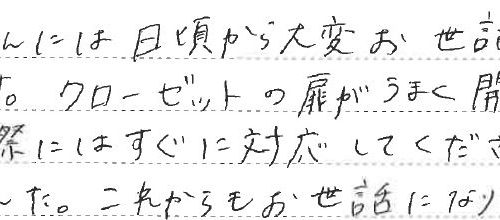 んには日頃から大変お世話
す。クローゼットの扉がうまく開
際にはすぐに対応してくださ
した。これからもお世話になり